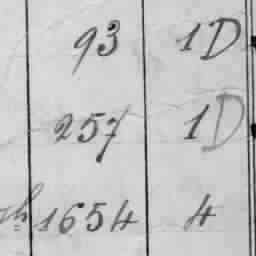 93 1D
257 1D
1654 4